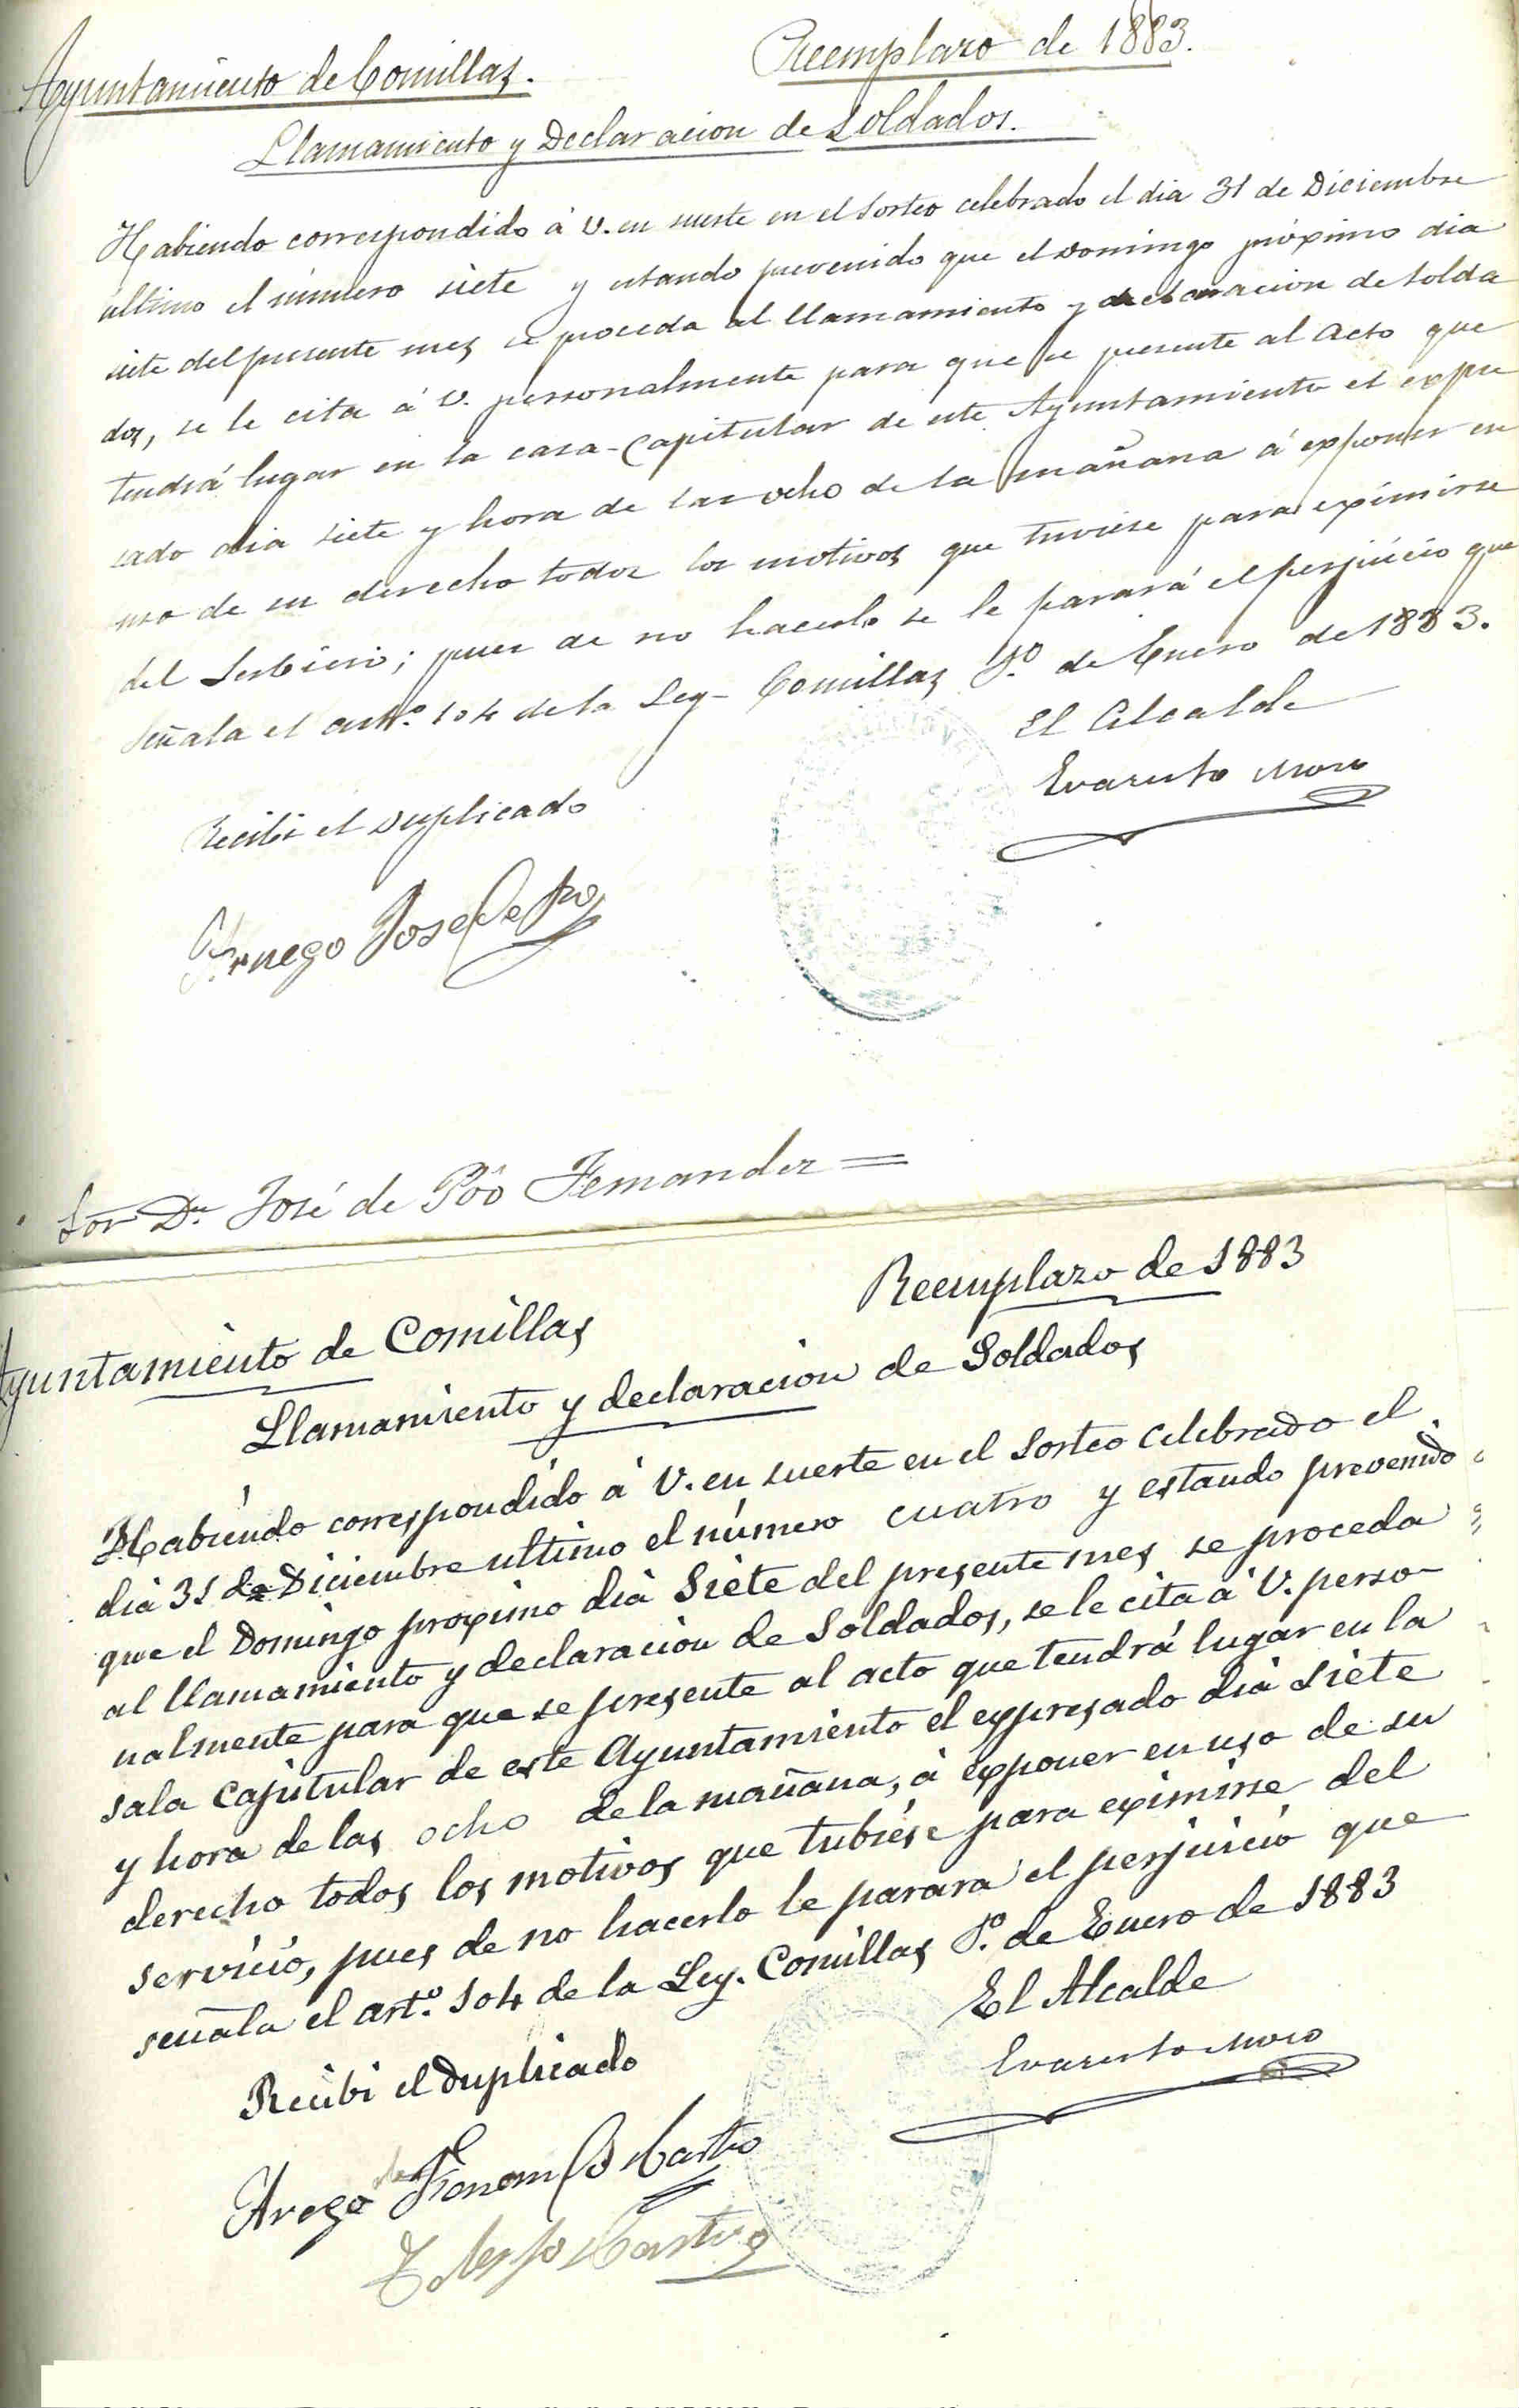 Ayuntamiento de Comillas.
Reemplazo de 1883.
Llamamiento y Declaracion de Soldados.
Habiendo correspondido á V. en suerte en el sorteo celebrado el dia 31 de Diciembre
ultimo el número siete y estando prevenido que el Domingo próximo dia
siete del presente mes se proceda al llamamiento y declaracion de solda
dos, se le cita á V. personalmente para que se presente al acto que
tendrá lugar en la casa-capitular de este Ayuntamiento el expre
sado dia siete y hora de las ocho de la mañana á exponer en
uso de su derecho todos los motivos que tuviese para eximirse
del Serbicio; pues de no hacerlo se le parará el perjuicio que
señala el artº. 104 de la Ley- Comillas 1º. de Enero de 1883.
El Alcalde
Evaristo Moro
Recibi el duplicado
José de Po
Sor Dn José de Póo Fernandez =
Reemplazo de 1883
Ayuntamiento de Comillas
Llamamiento y declaracion de Soldados
Habiendo correspondido á V. en suerte en el sorteo celebrado el
dia 31 de Diciembre ultimo el número cuatro y estando prevenido
que el Domingo proximo dia siete del presente mes se proceda
al llamamiento y declaracion de Soldados, se le cita á V. perso-
nalmente para que se presente al acto que tendrá lugar en la
sala capitular de este Ayuntamiento el expresado dia siete
y hora de las ocho de la mañana, á exponer en uso de su
derecho todos los motivos que tubiese para eximirse del
servicio, pues de no hacerlo le parara el perjuicio que
señala el artº. 104 de la Ley. Comillas 1º. de Enero de 1883
El Alcalde
Evaristo Moro
Recibi el duplicado
Castro
Castro